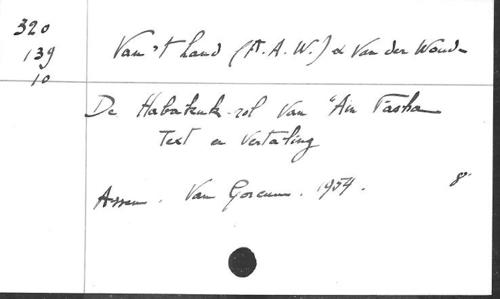 320
139
10
Van 't Land (F. A. W.) & Van der Woude
De Habakuk-rol van 'Ain Fasha
Text en Vertaling
Assen. Van Gorcum. 1954. 8°